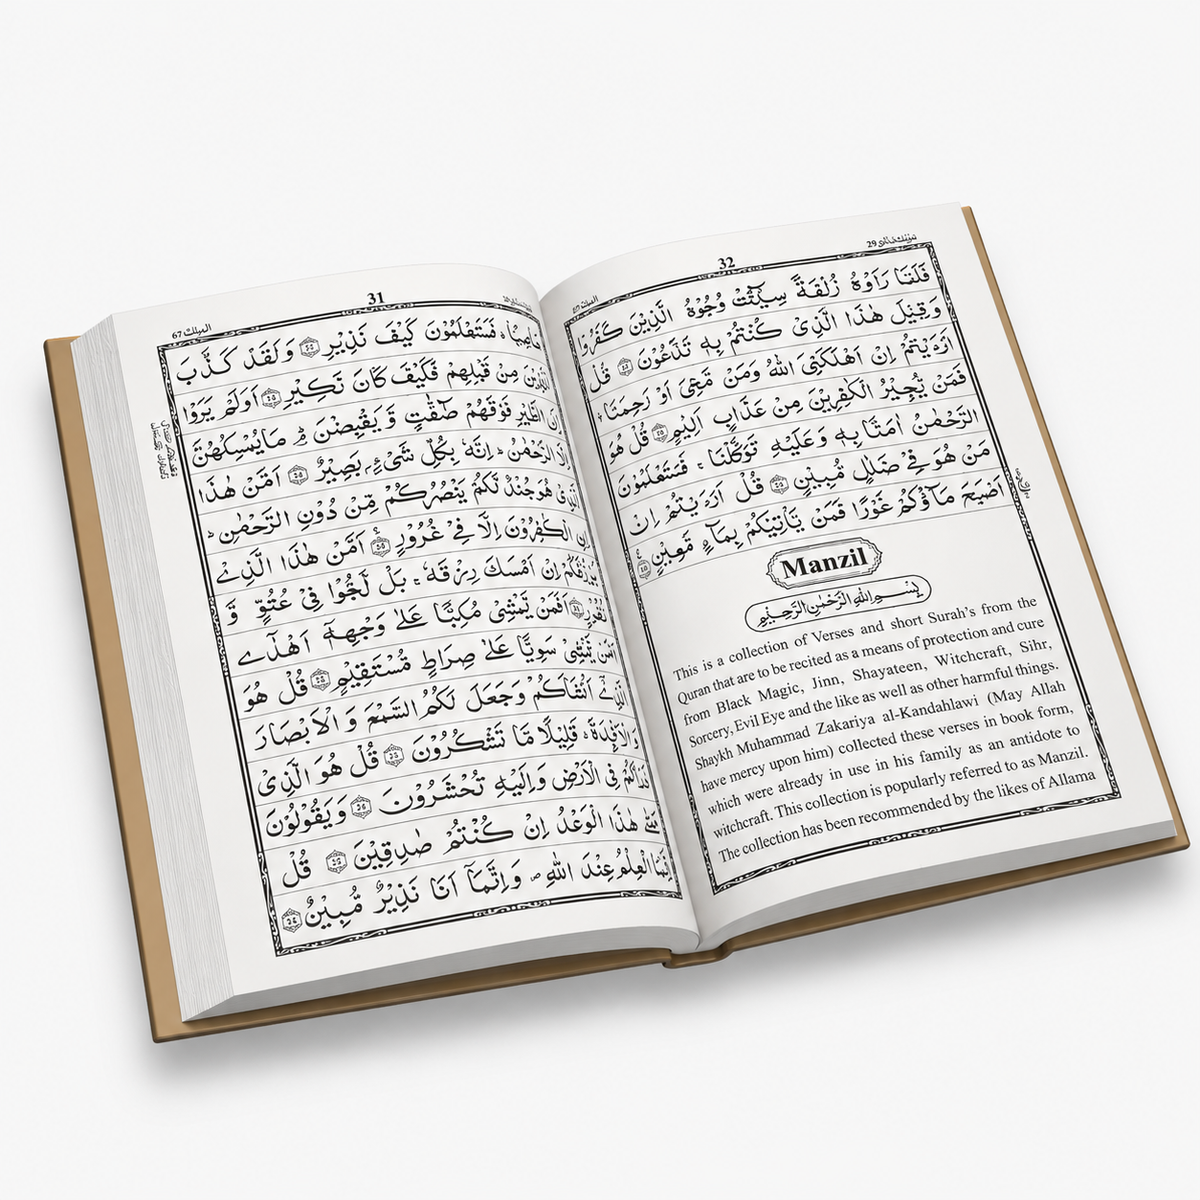 31
67 الملك
حَاصِبًا ؕ فَسَتَعْلَمُوْنَ كَيْفَ نَذِيْرِ وَلَقَدْ كَذَّبَ
الَّذِيْنَ مِنْ قَبْلِهِمْ فَكَيْفَ كَانَ نَكِيْرِ اَوَلَمْ يَرَوْا
اِلَى الطَّيْرِ فَوْقَهُمْ صٰٓفّٰتٍ وَّيَقْبِضْنَ ؔۘ مَا يُمْسِكُهُنَّ
اِلَّا الرَّحْمٰنُ ؕ اِنَّهٗ بِكُلِّ شَىْءٍۭ بَصِيْرٌ اَمَّنْ هٰذَا
الَّذِىْ هُوَ جُنْدٌ لَّكُمْ يَنْصُرُكُمْ مِّنْ دُوْنِ الرَّحْمٰنِ ؕ
اِنِ الْكٰفِرُوْنَ اِلَّا فِىْ غُرُوْرٍ اَمَّنْ هٰذَا الَّذِىْ
يَرْزُقُكُمْ اِنْ اَمْسَكَ رِزْقَهٗ ۚ بَلْ لَّجُّوْا فِىْ عُتُوٍّ وَّ
نُفُوْرٍ اَفَمَنْ يَّمْشِىْ مُكِبًّا عَلٰى وَجْهِهٖۤ اَهْدٰٓى
اَمَّنْ يَّمْشِىْ سَوِيًّا عَلٰى صِرَاطٍ مُّسْتَقِيْمٍ قُلْ هُوَ
الَّذِىْۤ اَنْشَاَكُمْ وَجَعَلَ لَكُمُ السَّمْعَ وَ الْاَبْصَارَ
وَالْاَفْئِدَةَ ؕ قَلِيْلًا مَّا تَشْكُرُوْنَ قُلْ هُوَ الَّذِىْ
ذَرَاَكُمْ فِى الْاَرْضِ وَاِلَيْهِ تُحْشَرُوْنَ وَيَقُوْلُوْنَ
مَتٰى هٰذَا الْوَعْدُ اِنْ كُنْتُمْ صٰدِقِيْنَ قُلْ
اِنَّمَا الْعِلْمُ عِنْدَ اللّٰهِ ۪ وَاِنَّمَاۤ اَنَا نَذِيْرٌ مُّبِيْنٌ
32
29
فَلَمَّا رَاَوْهُ زُلْفَةً سِيْٓـَٔتْ وُجُوْهُ الَّذِيْنَ كَفَرُوْا
وَقِيْلَ هٰذَا الَّذِىْ كُنْتُمْ بِهٖ تَدَّعُوْنَ قُلْ
اَرَءَيْتُمْ اِنْ اَهْلَكَنِىَ اللّٰهُ وَمَنْ مَّعِىَ اَوْ رَحِمَنَا ۙ
فَمَنْ يُّجِيْرُ الْكٰفِرِيْنَ مِنْ عَذَابٍ اَلِيْمٍ قُلْ هُوَ
الرَّحْمٰنُ اٰمَنَّا بِهٖ وَعَلَيْهِ تَوَكَّلْنَا ۚ فَسَتَعْلَمُوْنَ
مَنْ هُوَ فِىْ ضَلٰلٍ مُّبِيْنٍ قُلْ اَرَءَيْتُمْ اِنْ
اَصْبَحَ مَآؤُكُمْ غَوْرًا فَمَنْ يَّاْتِيْكُمْ بِمَآءٍ مَّعِيْنٍ
Manzil
بِسْمِ اللّٰهِ الرَّحْمٰنِ الرَّحِيْمِ
This is a collection of Verses and short Surah's from the
Quran that are to be recited as a means of protection and cure
from Black Magic, Jinn, Shayateen, Witchcraft, Sihr,
Sorcery, Evil Eye and the like as well as other harmful things.
Shaykh Muhammad Zakariya al-Kandahlawi (May Allah
have mercy upon him) collected these verses in book form,
which were already in use in his family as an antidote to
witchcraft. This collection is popularly referred to as Manzil.
The collection has been recommended by the likes of Allama